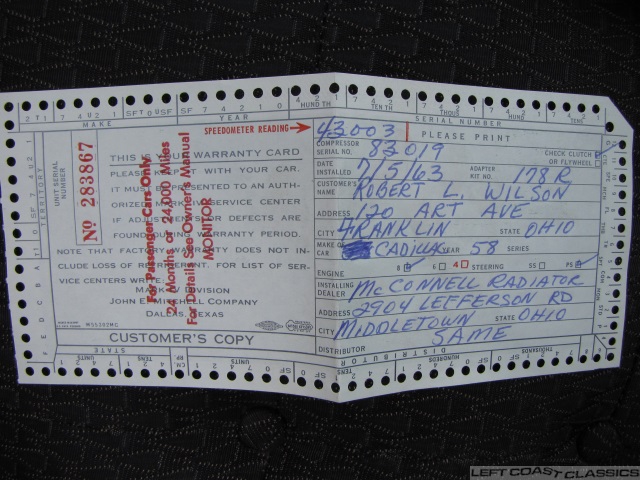 MAKE YEAR SERIAL NUMBER
SPEEDOMETER READING → 43003 PLEASE PRINT
THIS IS YOUR WARRANTY CARD
PLEASE KEEP IT WITH YOUR CAR.
IT MUST BE PRESENTED TO AN AUTH-
ORIZED MARK SERVICE CENTER
IF ADJUSTMENTS OR DEFECTS ARE
FOUND DURING WARRANTY PERIOD.
NOTE THAT FACTORY WARRANTY DOES NOT IN-
CLUDE LOSS OF REFRIGERANT. FOR LIST OF SER-
VICE CENTERS WRITE:
MARK DIVISION
JOHN E. MITCHELL COMPANY
DALLAS, TEXAS
UNIT SERIAL NUMBER
No 283867
TERRITORY
For Passenger Cars Only
24 Months or 24,000 Miles
For Details See Owner's Manual
MONITOR
CUSTOMER'S COPY
COMPRESSOR SERIAL NO. 83019 CHECK CLUTCH
OR FLYWHEEL
DATE INSTALLED 7/5/63 ADAPTER KIT NO. 178R
CUSTOMER'S NAME ROBERT L. WILSON
ADDRESS 120 ART AVE
CITY FRANKLIN STATE OHIO
MAKE OF CAR CADILLAC YEAR 58 SERIES
ENGINE 8 6 4 STEERING SS PS
INSTALLING DEALER MCCONNELL RADIATOR
ADDRESS 2904 LEFFERSON RD
CITY MIDDLETOWN STATE OHIO
DISTRIBUTOR SAME
STATE UNITS DISTRIBUTOR HUNDREDS THOUSANDS
LEFT COAST CLASSICS